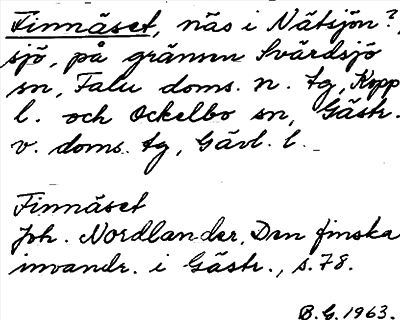 Finnäset, näs i Nätsjön?,
sjö, på gränsen Svärdsjö
sn, Falu doms. n. tg, Kopp
l. och Ockelbo sn, Gästr.
v. doms. tg, Gävl. l.
Finnäset
Joh. Nordlander, Den finska
invandr. i Gästr., s. 78.
B.G. 1963.